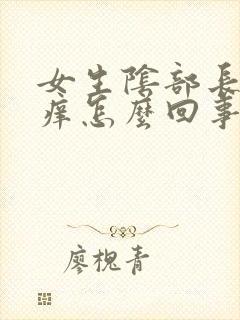 女生陰部長
痒怎麼回事
廖槐青